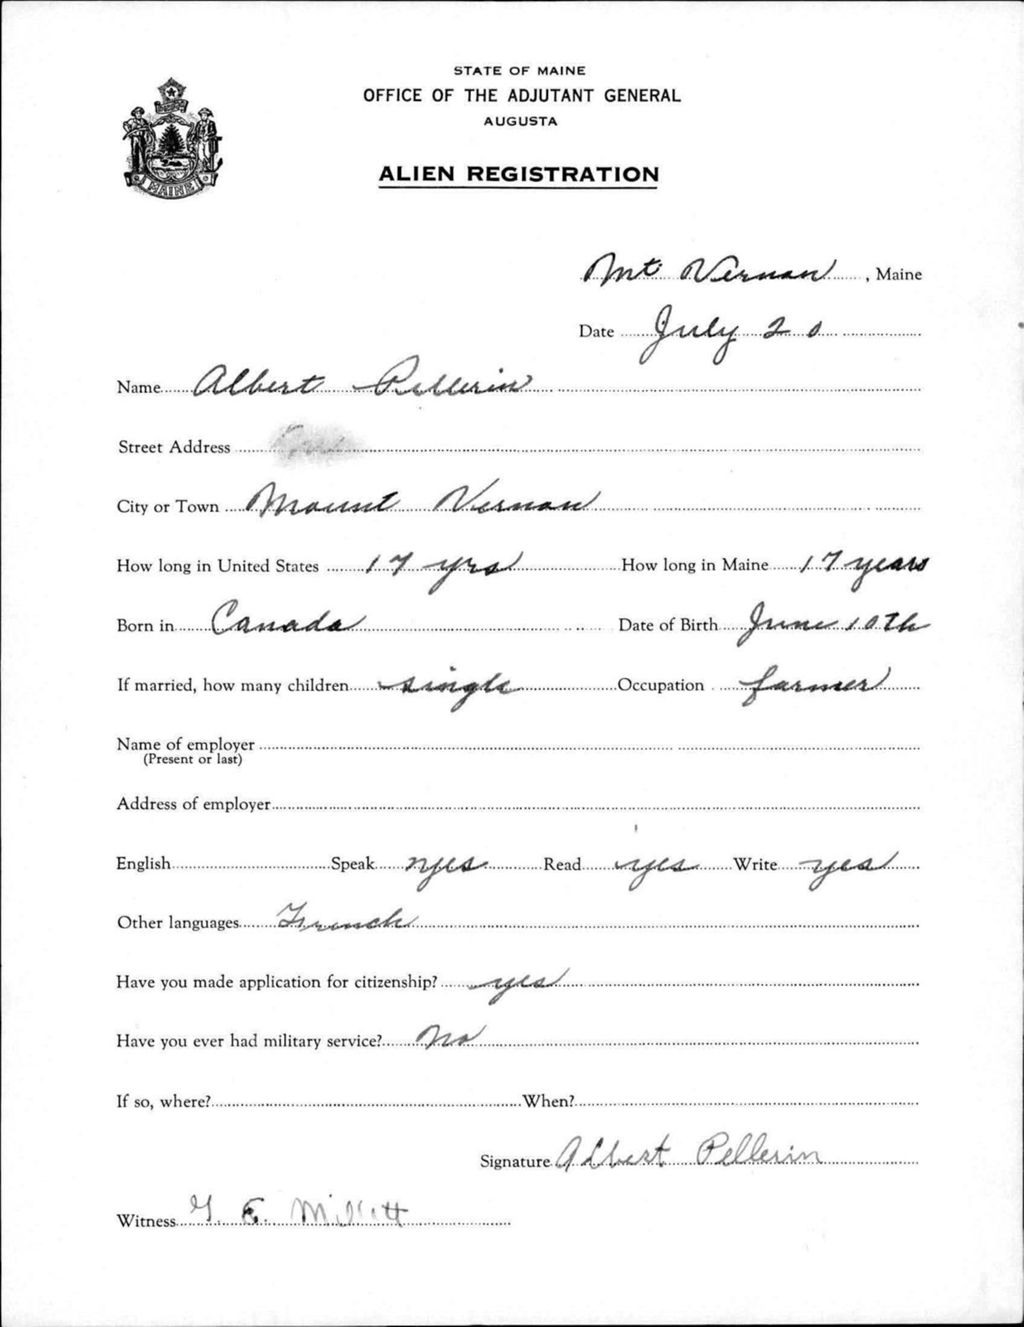 STATE OF MAINE
OFFICE OF THE ADJUTANT GENERAL
AUGUSTA
ALIEN REGISTRATION
MAINE
Mt Vernon, Maine
Date July 20
Name Albert Pellerin
Street Address
City or Town Mount Vernon
How long in United States 17 yrs How long in Maine 17 years
Born in Canada Date of Birth June 10th
If married, how many children single Occupation farmer
Name of employer
(Present or last)
Address of employer
English Speak yes Read yes Write yes
Other languages French
Have you made application for citizenship? yes
Have you ever had military service? No
If so, where? When?
Signature Albert Pellerin
Witness E. Millett